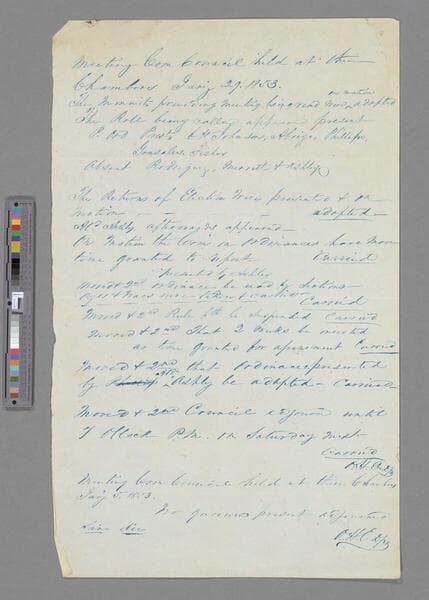 Meeting Com Council held at their
Chambers Jany 29. 1853.
on motion
The Minuits preceeding meeting being read was adopted
The Roll being called appeared present
Johnson, Phillips,
Gonsales Fisher
Absent Rodrigues, Merritt & Ashby
The Returns of Election were presented & on
motion - - - - adopted -
Mr Ashby afterwards appeared -
On Motion the Com on Ordinances have more
time granted to report Carried
Presented by Ashby
Moved & 2nd Ordinance be read by Sections
Ayes & Noes were Carried
Moved & 2nd Rule be Suspended Carried
Moved & 2nd That 2 be inserted
as time granted for agreement Carried
Moved & 2nd that Ordinance presented
by Ashby be adopted - Carried
Moved & 2nd Council adjourn until
7 Oclock P.M. on Saturday next -
Carried
Meeting Com Council held at their Chambers
No quorum present - adjourned
Sine die